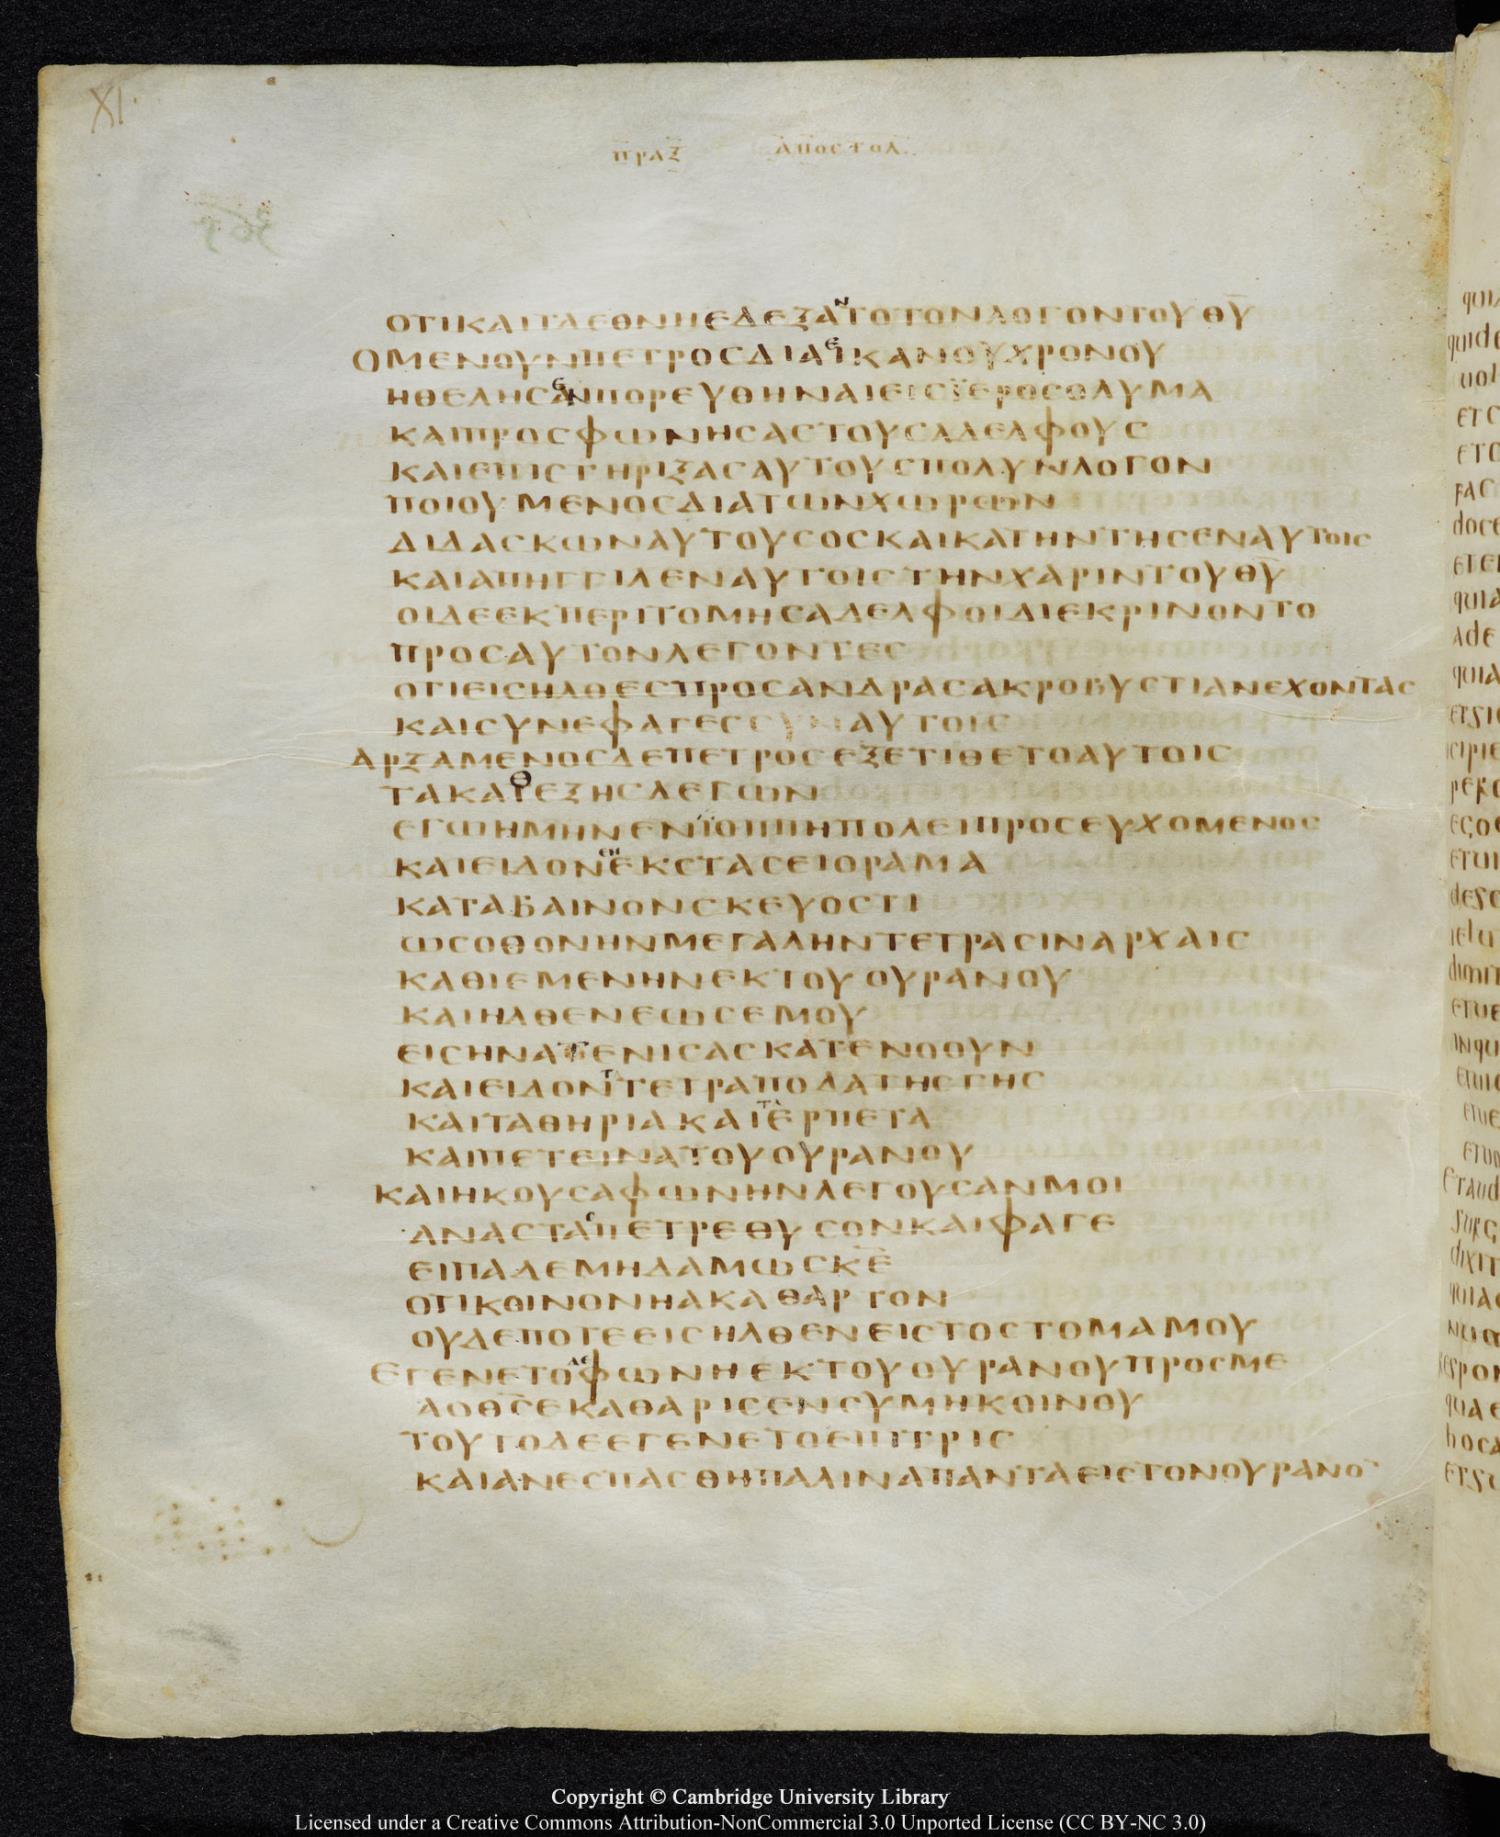 XI
ΠΡΑΞ ΑΠΟCΤΟΛ
ΟΤΙΚΑΙΤΑΕΘΝΗΕΔΕΞΑΝΤΟΤΟΝΛΟΓΟΝΤΟΥΘΥ
ΟΜΕΝΟΥΝΠΕΤΡΟCΔΙΑΕΙΚΑΝΟΥΧΡΟΝΟΥ
ΗΘΕΛΗCΕΝΠΟΡΕΥΘΗΝΑΙΕΙCΪΕΡΟCΟΛΥΜΑ
ΚΑΙΠΡΟCΦΩΝΗCΑCΤΟΥCΑΔΕΛΦΟΥC
ΚΑΙΕΠΙCΤΗΡΙΞΑCΑΥΤΟΥCΠΟΛΥΝΛΟΓΟΝ
ΠΟΙΟΥΜΕΝΟCΔΙΑΤΩΝΧΩΡΩΝ
ΔΙΔΑCΚΩΝΑΥΤΟΥCΟCΚΑΙΚΑΤΗΝΤΗCΕΝΑΥΤΟΙC
ΚΑΙΑΠΗΓΓΙΛΕΝΑΥΤΟΙCΤΗΝΧΑΡΙΝΤΟΥΘΥ
ΟΙΔΕΕΚΠΕΡΙΤΟΜΗCΑΔΕΛΦΟΙΔΙΕΚΡΙΝΟΝΤΟ
ΠΡΟCΑΥΤΟΝΛΕΓΟΝΤΕC
ΟΤΙΕΙCΗΛΘΕCΠΡΟCΑΝΔΡΑCΑΚΡΟΒΥCΤΙΑΝΕΧΟΝΤΑC
ΚΑΙCΥΝΕΦΑΓΕCCΥΝΑΥΤΟΙC
ΑΡΞΑΜΕΝΟCΔΕΠΕΤΡΟCΕΞΕΤΙΘΕΤΟΑΥΤΟΙC
ΤΑΚΑΘΕΞΗCΛΕΓΩΝ
ΕΓΩΗΜΗΝΕΝΪΟΠΠΗΠΟΛΕΙΠΡΟCΕΥΧΟΜΕΝΟC
ΚΑΙΕΙΔΟΝΕΝΕΚCΤΑCΕΙΟΡΑΜΑ
ΚΑΤΑΒΑΙΝΟΝCΚΕΥΟCΤΙ
ΩCΟΘΟΝΗΝΜΕΓΑΛΗΝΤΕΤΡΑCΙΝΑΡΧΑΙC
ΚΑΘΙΕΜΕΝΗΝΕΚΤΟΥΟΥΡΑΝΟΥ
ΚΑΙΗΛΘΕΝΕΩCΕΜΟΥ
ΕΙCΗΝΑΤΕΝΙCΑCΚΑΤΕΝΟΟΥΝ
ΚΑΙΕΙΔΟΝΤΤΕΤΡΑΠΟΔΑΤΗCΓΗC
ΚΑΙΤΑΘΗΡΙΑΚΑΙΤΕΡΠΕΤΑ
ΚΑΙΠΕΤΕΙΝΑΤΟΥΟΥΡΑΝΟΥ
ΚΑΙΗΚΟΥCΑΦΩΝΗΝΛΕΓΟΥCΑΝΜΟΙ
ΑΝΑCΤΑCΠΕΤΡΕΘΥCΟΝΚΑΙΦΑΓΕ
ΕΙΠΑΔΕΜΗΔΑΜΩCΚΕ
ΟΤΙΚΟΙΝΟΝΗΑΚΑΘΑΡΤΟΝ
ΟΥΔΕΠΟΤΕΕΙCΗΛΘΕΝΕΙCΤΟCΤΟΜΑΜΟΥ
ΕΓΕΝΕΤΟΔΕΦΩΝΗΕΚΤΟΥΟΥΡΑΝΟΥΠΡΟCΜΕ
ΑΟΘCΕΚΑΘΑΡΙCΕΝCΥΜΗΚΟΙΝΟΥ
ΤΟΥΤΟΔΕΕΓΕΝΕΤΟΕΠΙΤΡΙC
ΚΑΙΑΝΕCΠΑCΘΗΠΑΛΙΝΑΠΑΝΤΑΕΙCΤΟΝΟΥΡΑΝΟ
Copyright © Cambridge University Library
Licensed under a Creative Commons Attribution-NonCommercial 3.0 Unported License (CC BY-NC 3.0)